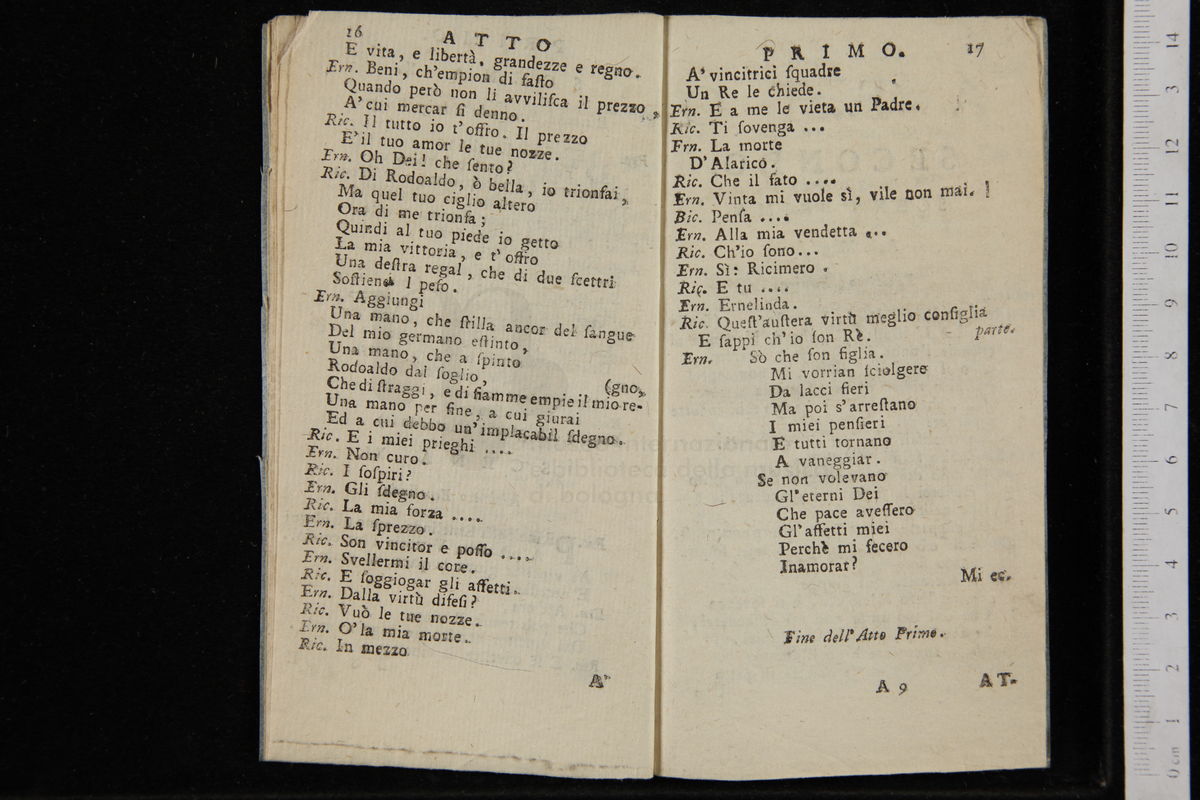 16 ATTO
E vita, e libertà, grandezze e regno.
Ern. Beni, ch'empion di faſto
Quando però non li avviliſca il prezzo,
A' cui mercar ſi denno.
Ric. Il tutto io t'offro. Il prezzo
E' il tuo amor le tue nozze.
Ern. Oh Dei! che ſento?
Ric. Di Rodoaldo, ò bella, io trionfai,
Ma quel tuo ciglio altero
Ora di me trionfa;
Quindi al tuo piede io getto
La mia vittoria, e t'offro
Una deſtra regal, che di due ſcettri
Soſtiene l peſo.
Ern. Aggiungi
Una mano, che ſtilla ancor del ſangue
Del mio germano eſtinto,
Una mano, che a ſpinto
Rodoaldo dal ſoglio, (gno,
Che di ſtraggi, e di fiamme empie il mio re-
Una mano per fine, a cui giurai
Ed a cui debbo un'implacabil ſdegno.
Ric. E i miei prieghi ....
Ern. Non curo.
Ric. I ſoſpiri?
Ern. Gli ſdegno.
Ric. La mia forza ....
Ern. La ſprezzo.
Ric. Son vincitor e poſſo ....
Ern. Svellermi il core.
Ric. E ſoggiogar gli affetti.
Ern. Dalla virtù difeſi?
Ric. Vuò le tue nozze.
Ern. O' la mia morte.
Ric. In mezzo
A'
PRIMO. 17
A' vincitrici ſquadre
Un Re le chiede.
Ern. E a me le vieta un Padre.
Ric. Ti ſovenga ...
Ern. La morte
D' Alarico.
Ric. Che il fato ....
Ern. Vinta mi vuole sì, vile non mai.
Ric. Penſa ....
Ern. Alla mia vendetta ...
Ric. Ch'io ſono...
Ern. Sì: Ricimero.
Ric. E tu ....
Ern. Ernelinda.
Ric. Queſt'auſtera virtù meglio conſiglia
E ſappi ch'io ſon Rè. parte.
Ern. Sò che ſon figlia.
Mi vorrian ſciolgere
Da lacci fieri
Ma poi s'arreſtano
I miei penſieri
E tutti tornano
A vaneggiar.
Se non volevano
Gl'eterni Dei
Che pace aveſſero
Gl'affetti miei
Perchè mi fecero
Inamorar?
Mi ec.
Fine dell'Atto Primo.
A 9 AT-